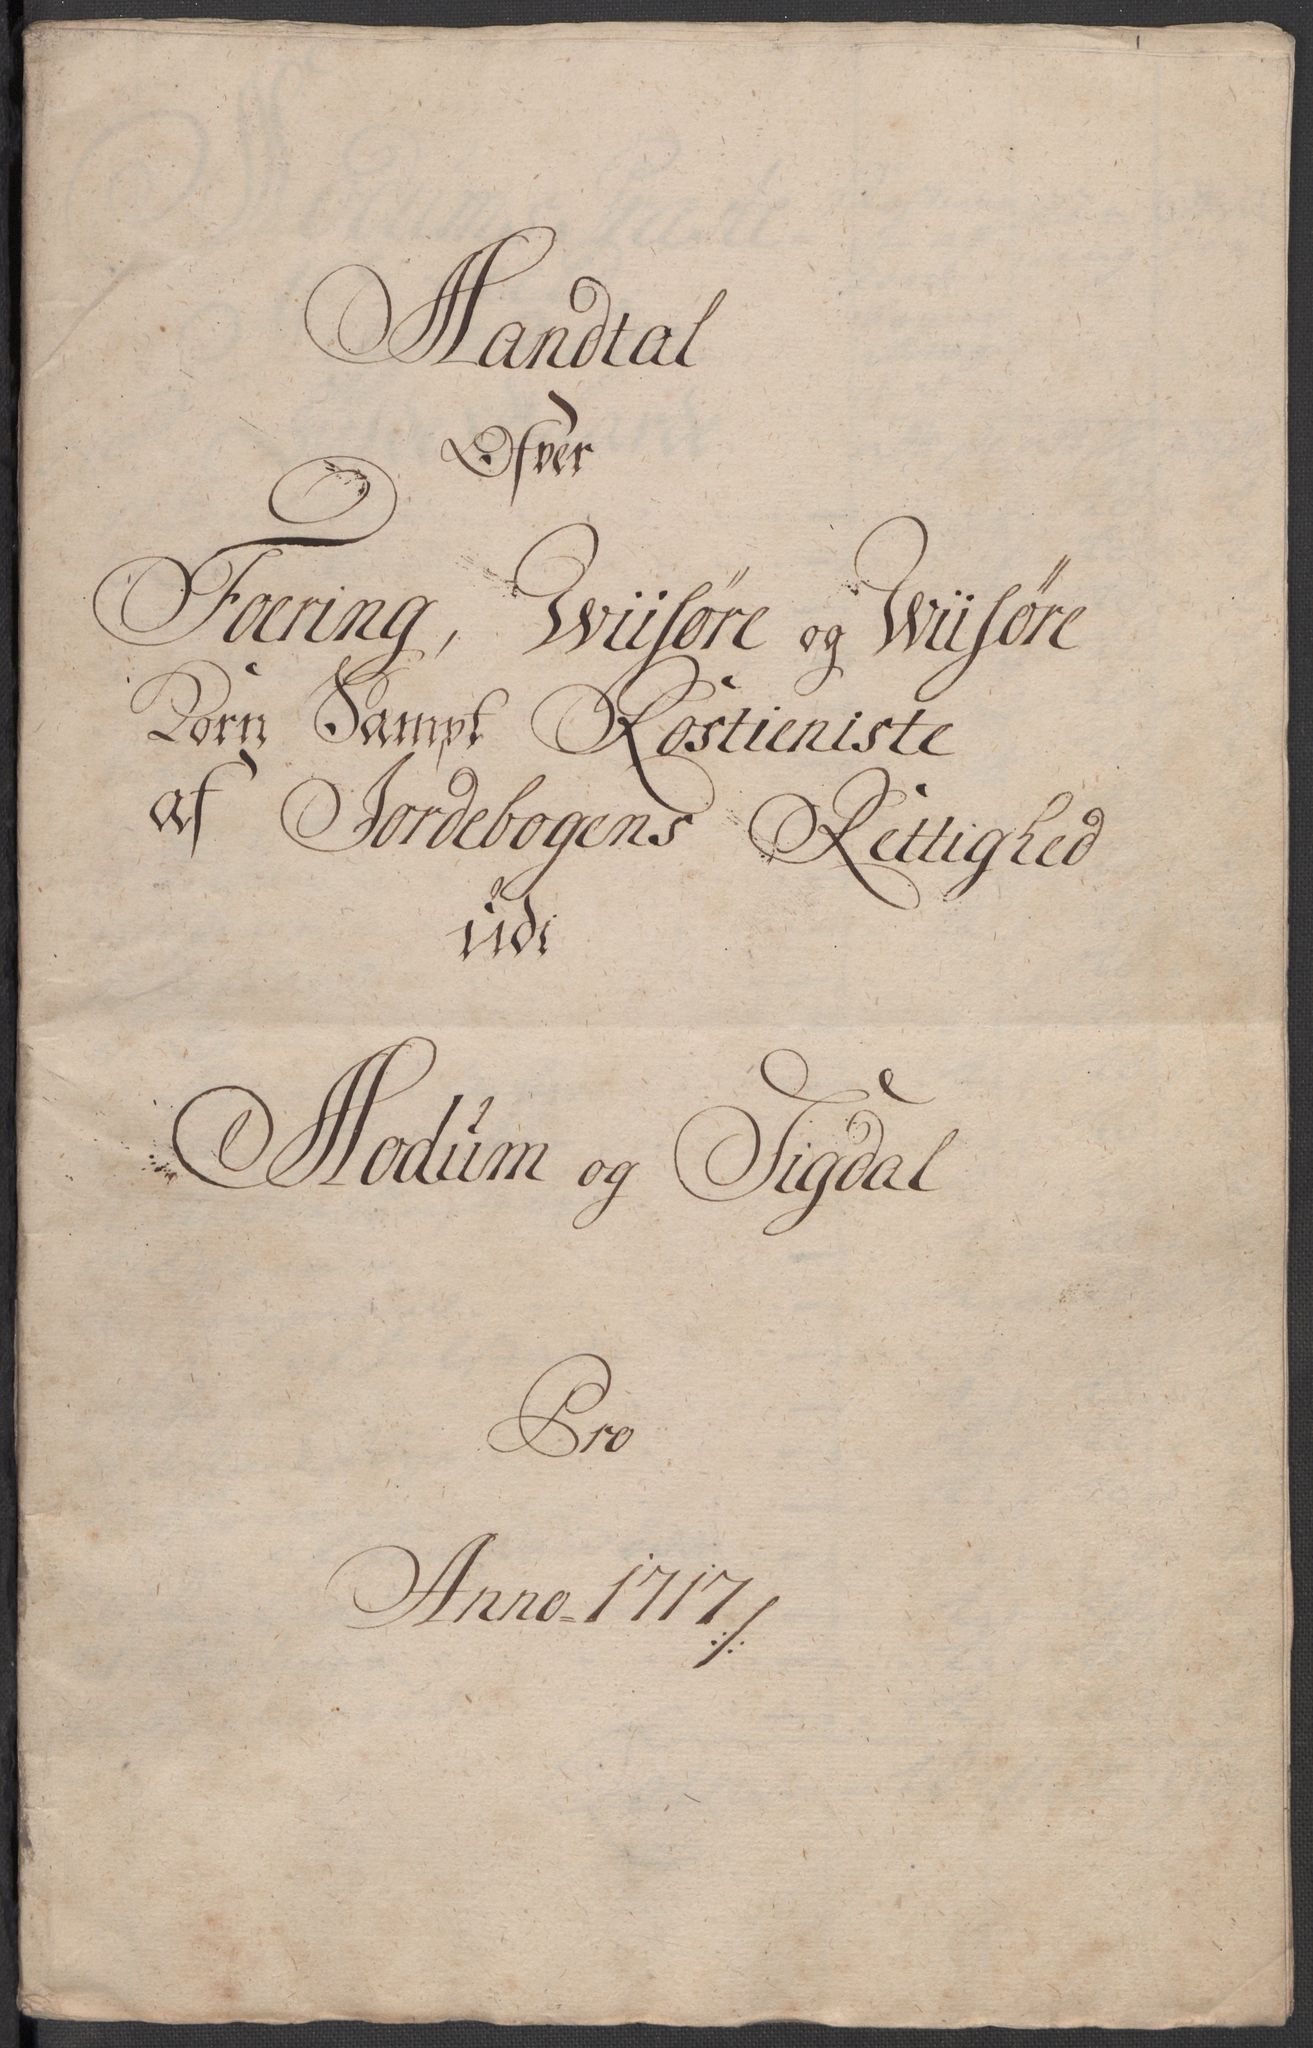 Mandtal
Ofver
Foering, Wiisøre og Wiisøre
Korn Sampt Rostieniste
af Jordebogens Rettighed
udi
Modum og Sigdal
Pro
Anno 1717